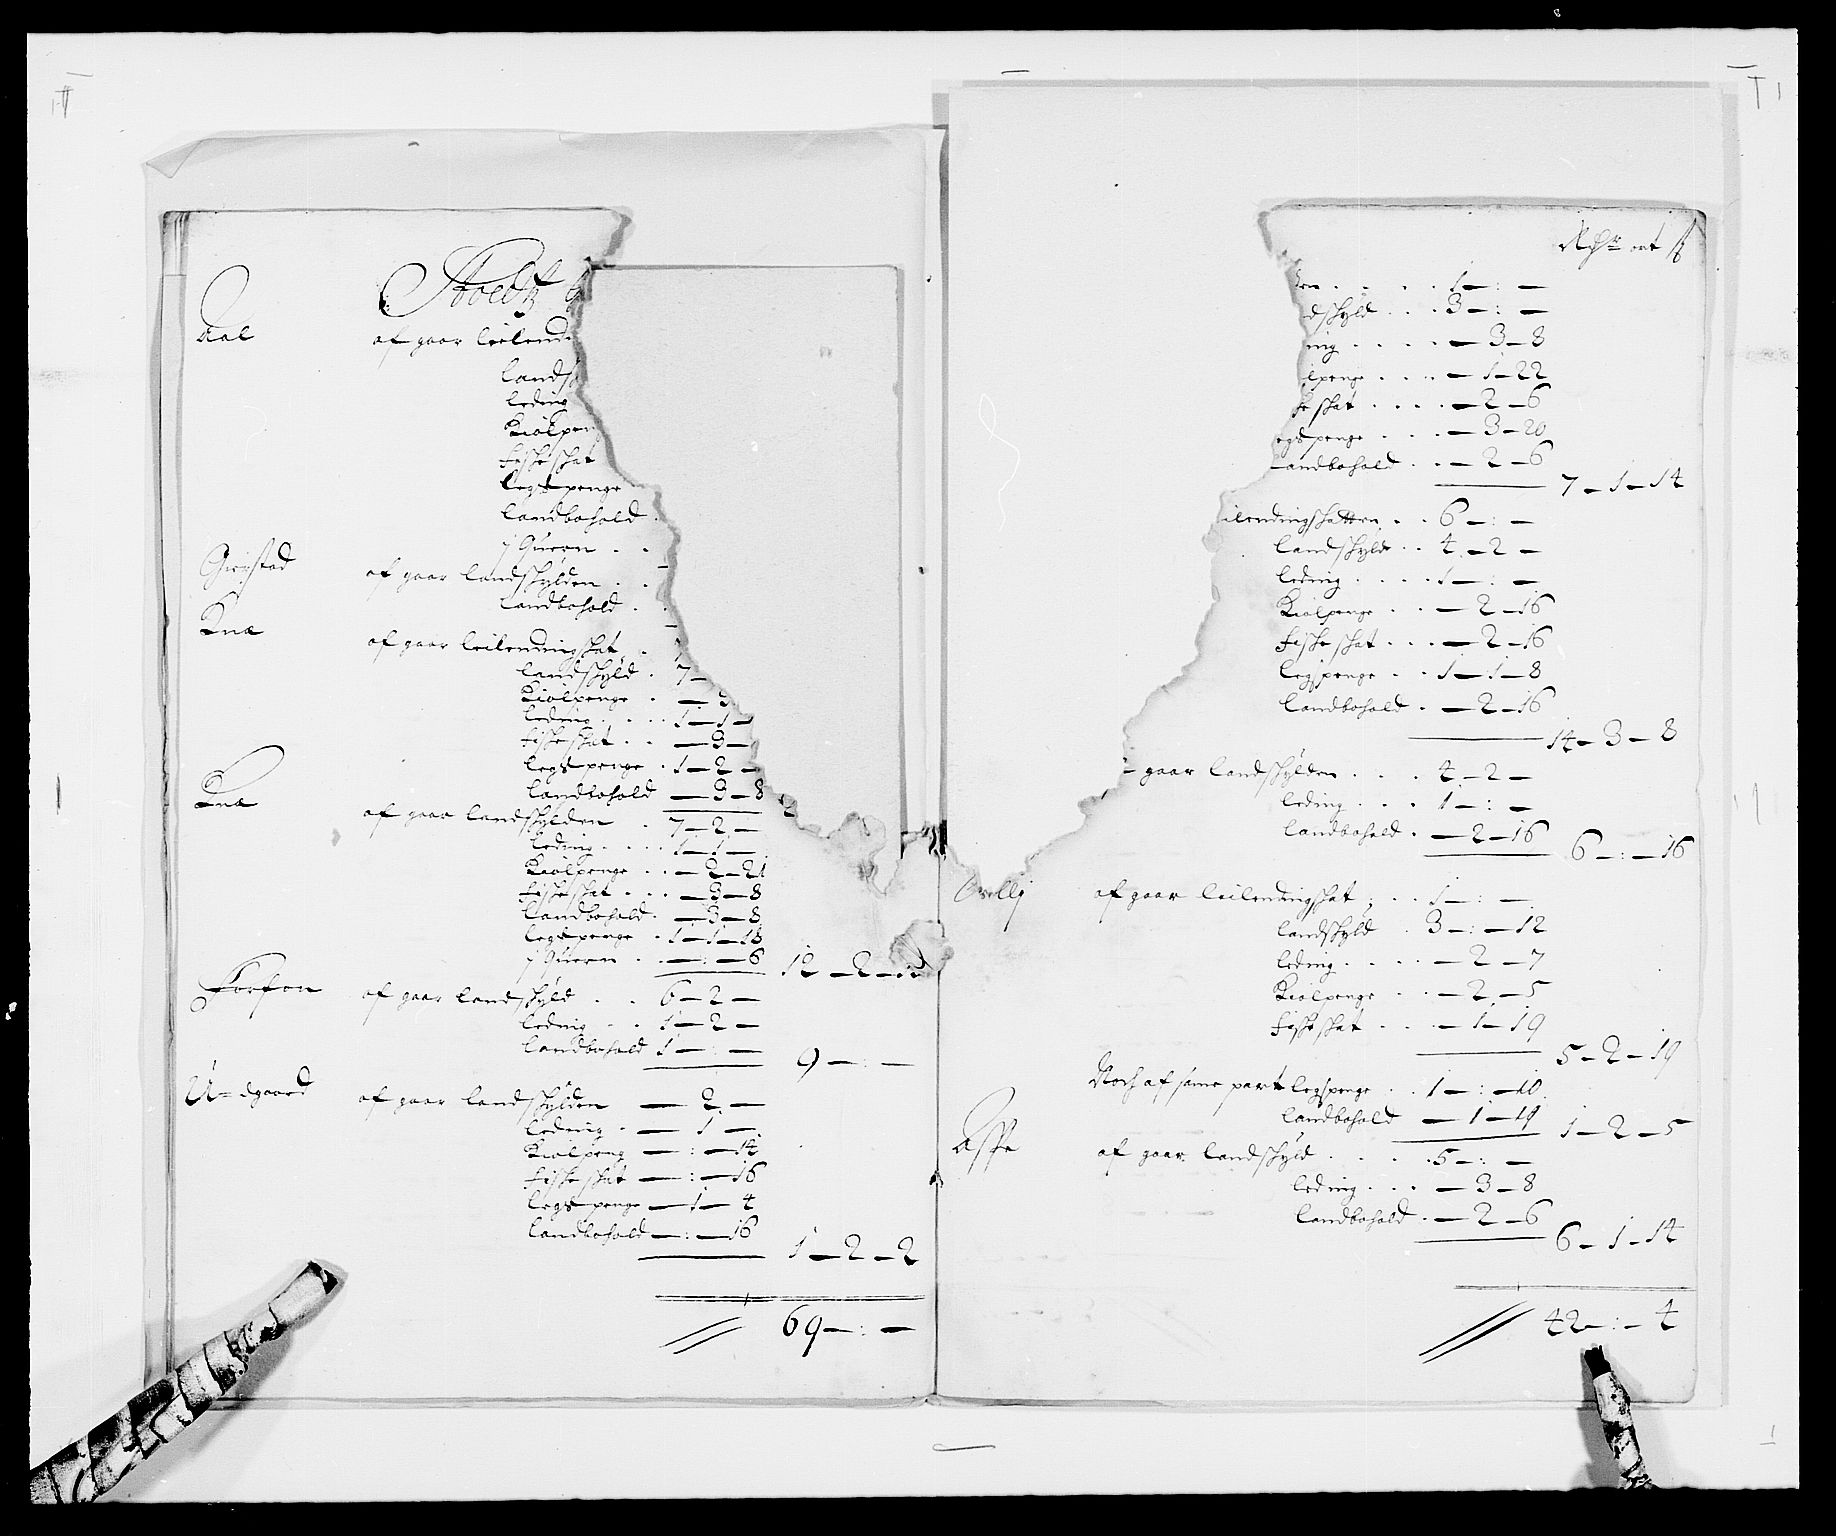 Aal af gaar leilend
lands
leding
Kiølpen
fiskeskat
legs penge
landbohold
j Qvern . .
Gierstad af gaar landskylden . .
landbohold . .
Knæ af gaar leilendingskat .
landskyld . 7 —
Kiølpenge . — 3
leding . . . 1 — 1 —
fiskeskat . . — 3 —
legs penge . 1 — 2 —
landbohold — 3 — 8
Knæ af gaar landskylden . 7 — 2 —
leding . . . . 1 — 1 —
Kiølpenge . . — 2 — 21
fiskeskat . . . — 3 — 8
landbohold . — 3 — 8
legs penge . 1 — 1 — 18
j Qvern . . — : — 6
12 — 2 —
af gaar landskyld . . 6 — 2 —
leding . . 1 — 2 —
landbohold 1 — : —
9 — : —
af gaar landskylden — 2 —
leding . — 1 —
Kiølpeng — : — 14
fiskeskat — : — 16
legs penge — 1 — 4
landbohold — : — 16
1 — 2 — 2
69 — : —
Rdr ort ß
. . . . 1 — : —
dskyld . . . 3 — : —
ing . . . . — 3 — 8
lpenge . . . — 1 — 22
skat . . . . — 2 — 6
gspenge . . . — 3 — 20
landbohold . . — 2 — 6
7 — 1 — 14
ilendingskatten . . 6 — : —
landskyld . . 4 — 2 —
leding . . . . 1 — : —
Kiølpenge . . — 2 — 16
fiskeskat . . . — 2 — 16
legspenge . . 1 — 1 — 8
landbohold . — 2 — 16
14 — 3 — 8
gaar landskylden . . . 4 — 2 —
leding . . . 1 — : —
landbohold . — 2 — 16
6 — : — 16
af gaar leilendingskat . . 1 — : —
landskyld . 3 — : — 12
leding . . . . — 2 — 7
Kiølpenge . . — 2 — 5
fiskeskat . . . — 1 — 19
5 — 2 — 19
Noch af same part legspenge . . 1 — : — 10
landbohold — 1 — 19
1 — 2 — 5
af gaar landskyld . . . . 5 — : —
leding . . . — 3 — 8
landbohold . — 2 — 6
6 — 1 — 14
42 — : — 4